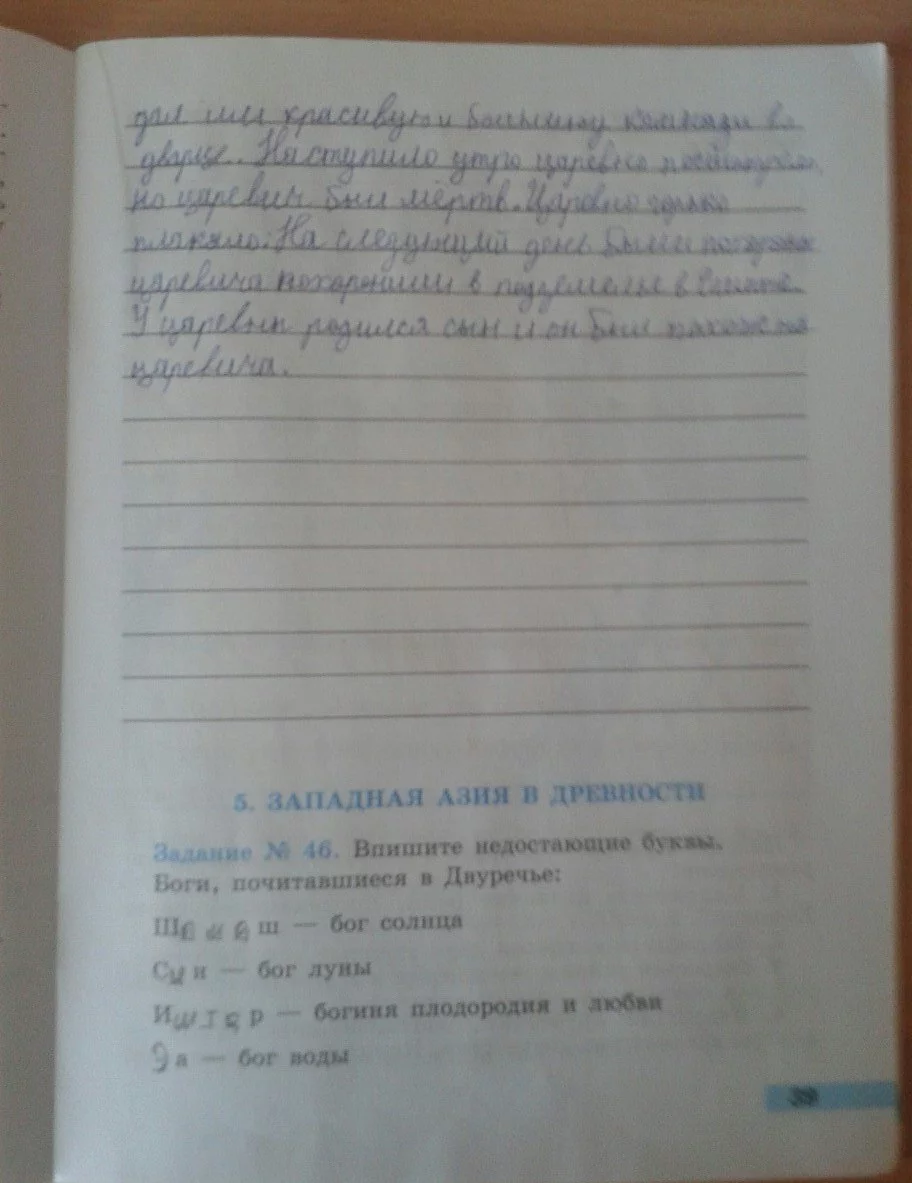 дал им красивую и большую комнату во
дворце. Наступило утро царевна
но царевич был мёртв. Царевна только
плакала. На следующий день были
царевича похоронили в подземелье в Египте.
У царевны родился сын и он был похож на
царевича.
5. ЗАПАДНАЯ АЗИЯ В ДРЕВНОСТИ
Задание № 46. Впишите недостающие буквы.
Боги, почитавшиеся в Двуречье:
Шамаш — бог солнца
Син — бог луны
Иштар — богиня плодородия и любви
Эа — бог воды
39